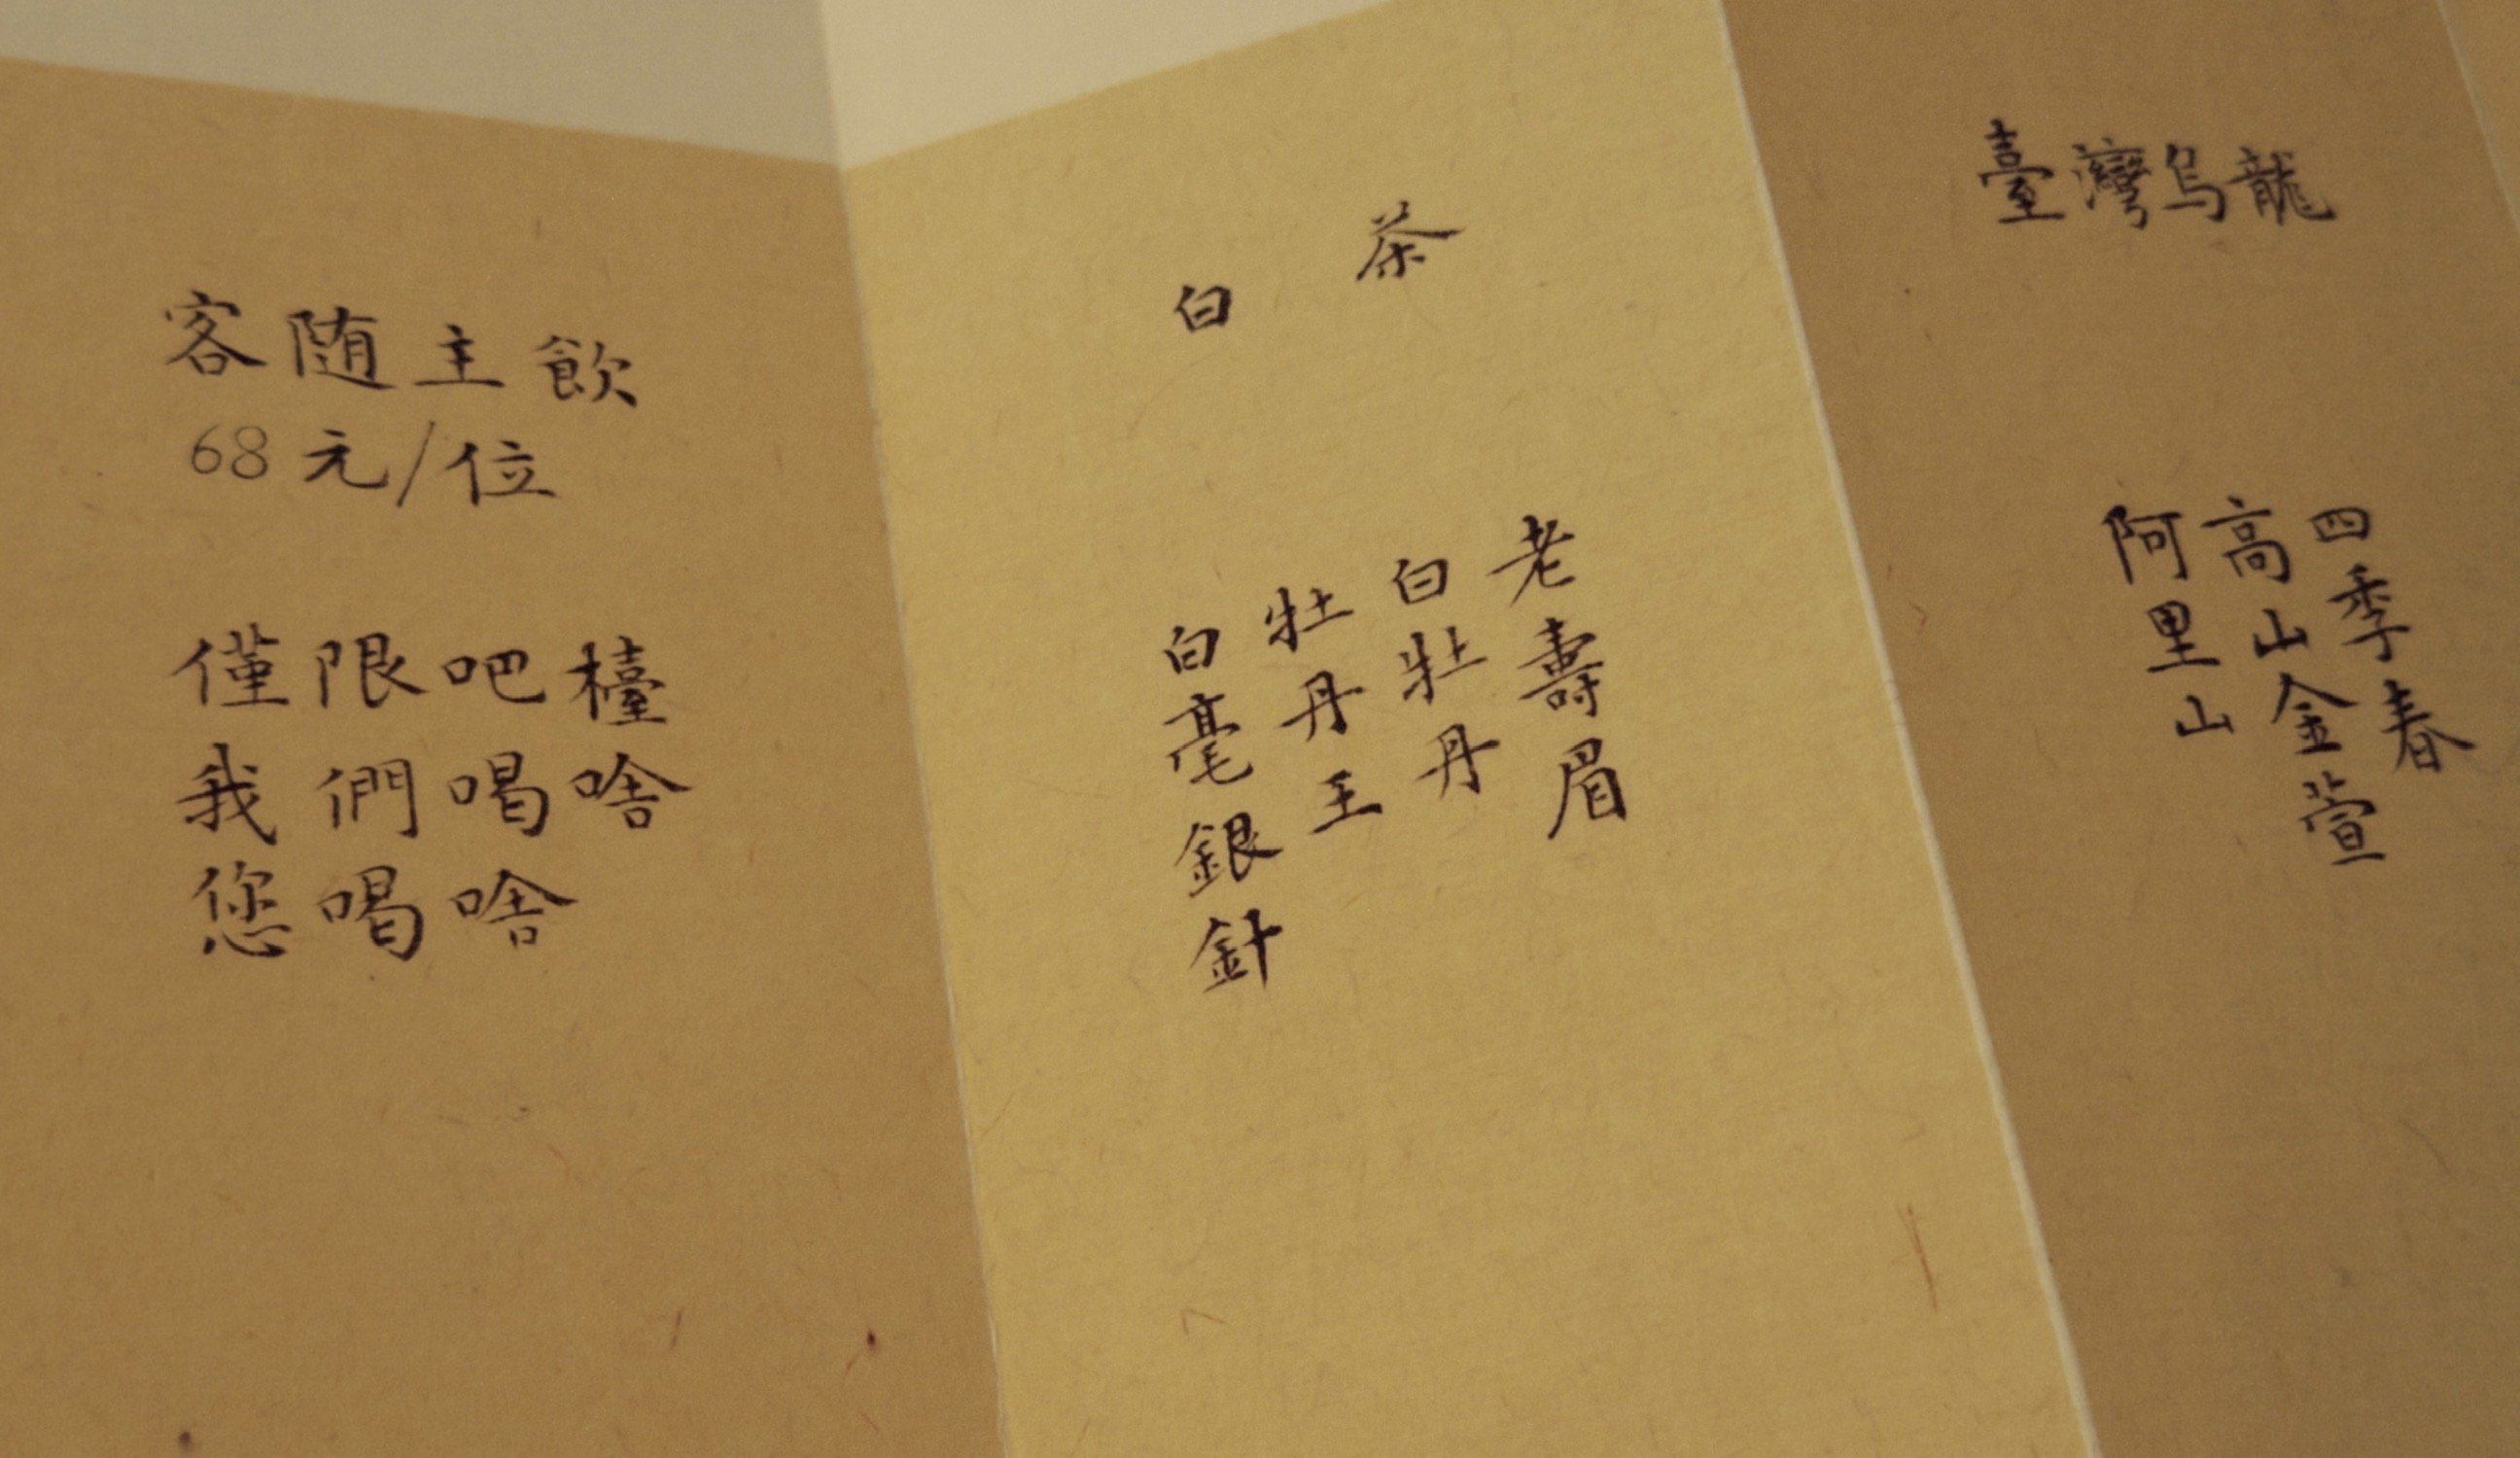 客随主飲
68元/位
僅限吧檯
我們喝啥
您喝啥
白茶
白毫銀針
牡丹王
白牡丹
老壽眉
臺灣烏龍
阿里山
高山金萱
四季春